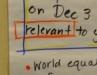 on Dec 3
relevant to
• World equa